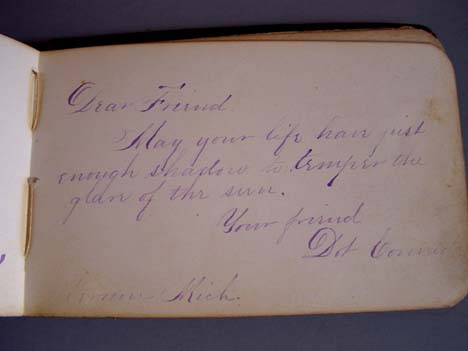 Dear Friend.
May your life have just
enough shadow to temper the
glare of the sun.
Your friend
Dot
Mich.